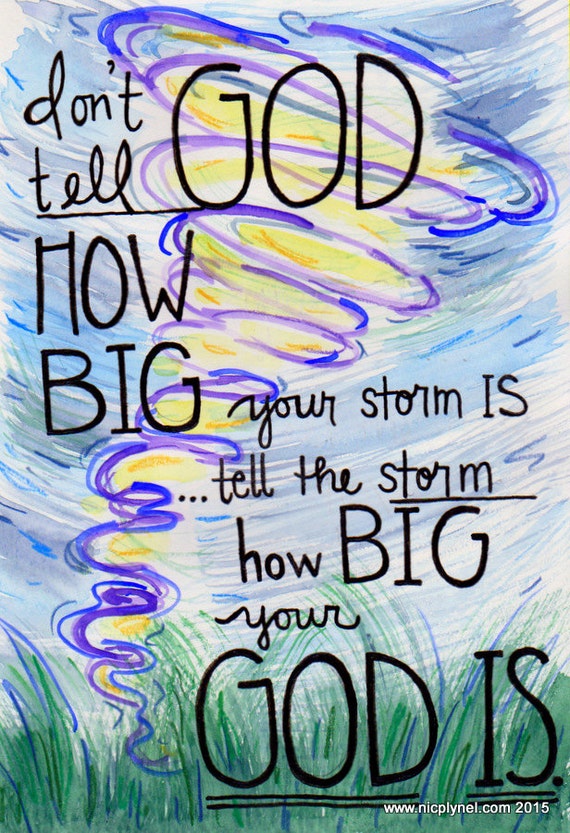 don't
tell GOD
HOW
BIG your storm IS
...tell the storm
how BIG
your
GOD IS.
www.nicplynel.com 2015